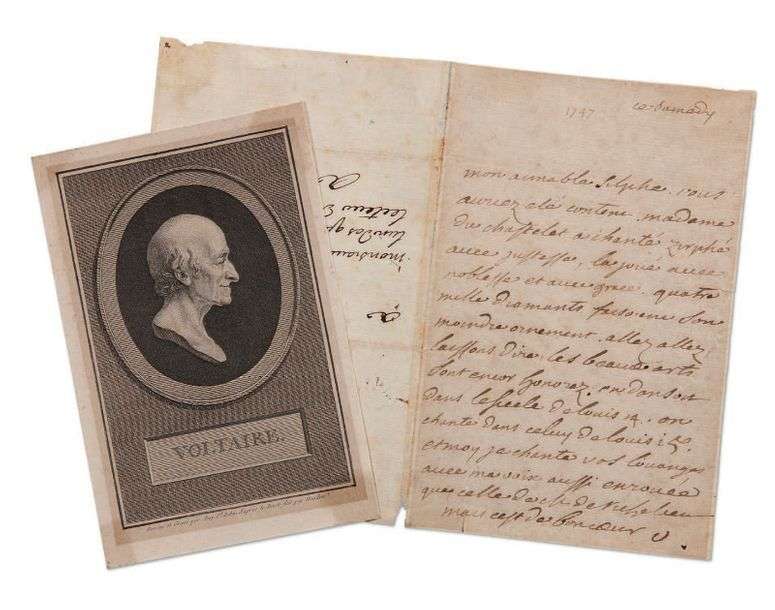 VOLTAIRE
1747 ce Samedy
mon aimable silphe. vous
auriez eté content. madame
du chastelet a chanté zirphé
avec justesse, la joué avec
noblesse et avec grace. quatre
mille diamants faisoient son
moindre ornement. allez allez
laissons dire. les beaux arts
sont encor honorez. on dansoit
dans le siecle de louis 14. on
chante dans celuy de louis 15.
et moy je chante vos louanges
avec ma voix aussi enrouée
que celle de
mais c'est de bon cœur V
a
monsieur
lun des
lecteurs
a